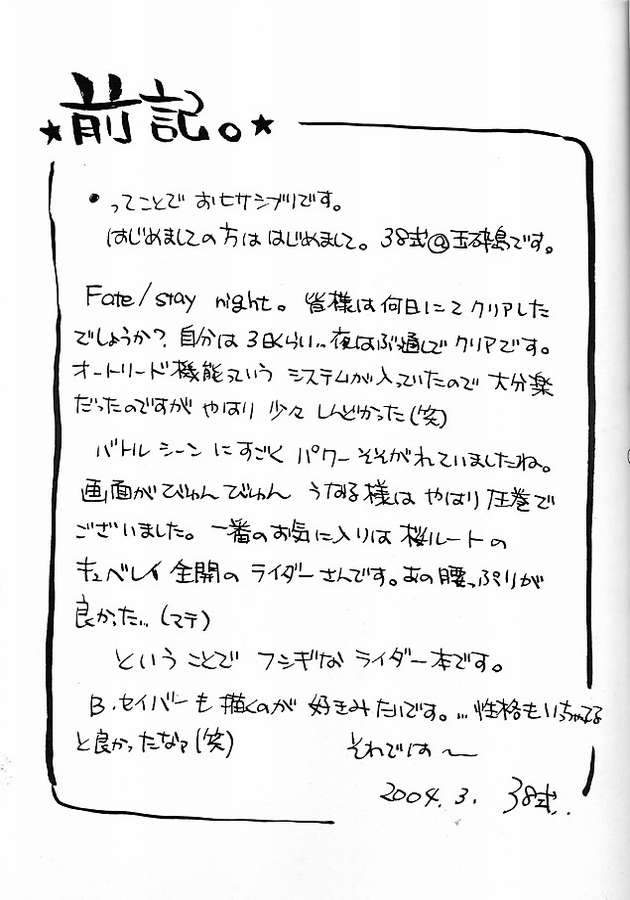 ★前記。★
・ってことで おヒサシブリです。
はじめましての方は はじめまして。38式@玉砕島です。
Fate/stay night。皆様は何日にて クリアした
でしょうか?自分は3日くらい..夜はぶっ通しで クリアです。
オートリード機能っていう システムが入っていたので 大分楽
だったのですが やはり 少々 しんどかった(笑)
バトルシーン にすごく パワーそそがれていましたね。
画面がびゅんびゅん うなる様は やはり 圧巻で
ございました。一番のお気に入りは 桜ルートの
キュベレイ 全開の ライダーさんです。あの腰っぷりが
良かった... (マテ)
ということで フシギな ライダー本です。
B.セイバーも 描くのが 好きみたいです。...性格もいっちゃってる
と良かったなァ(笑) それでは〜
2004.3. 38式..